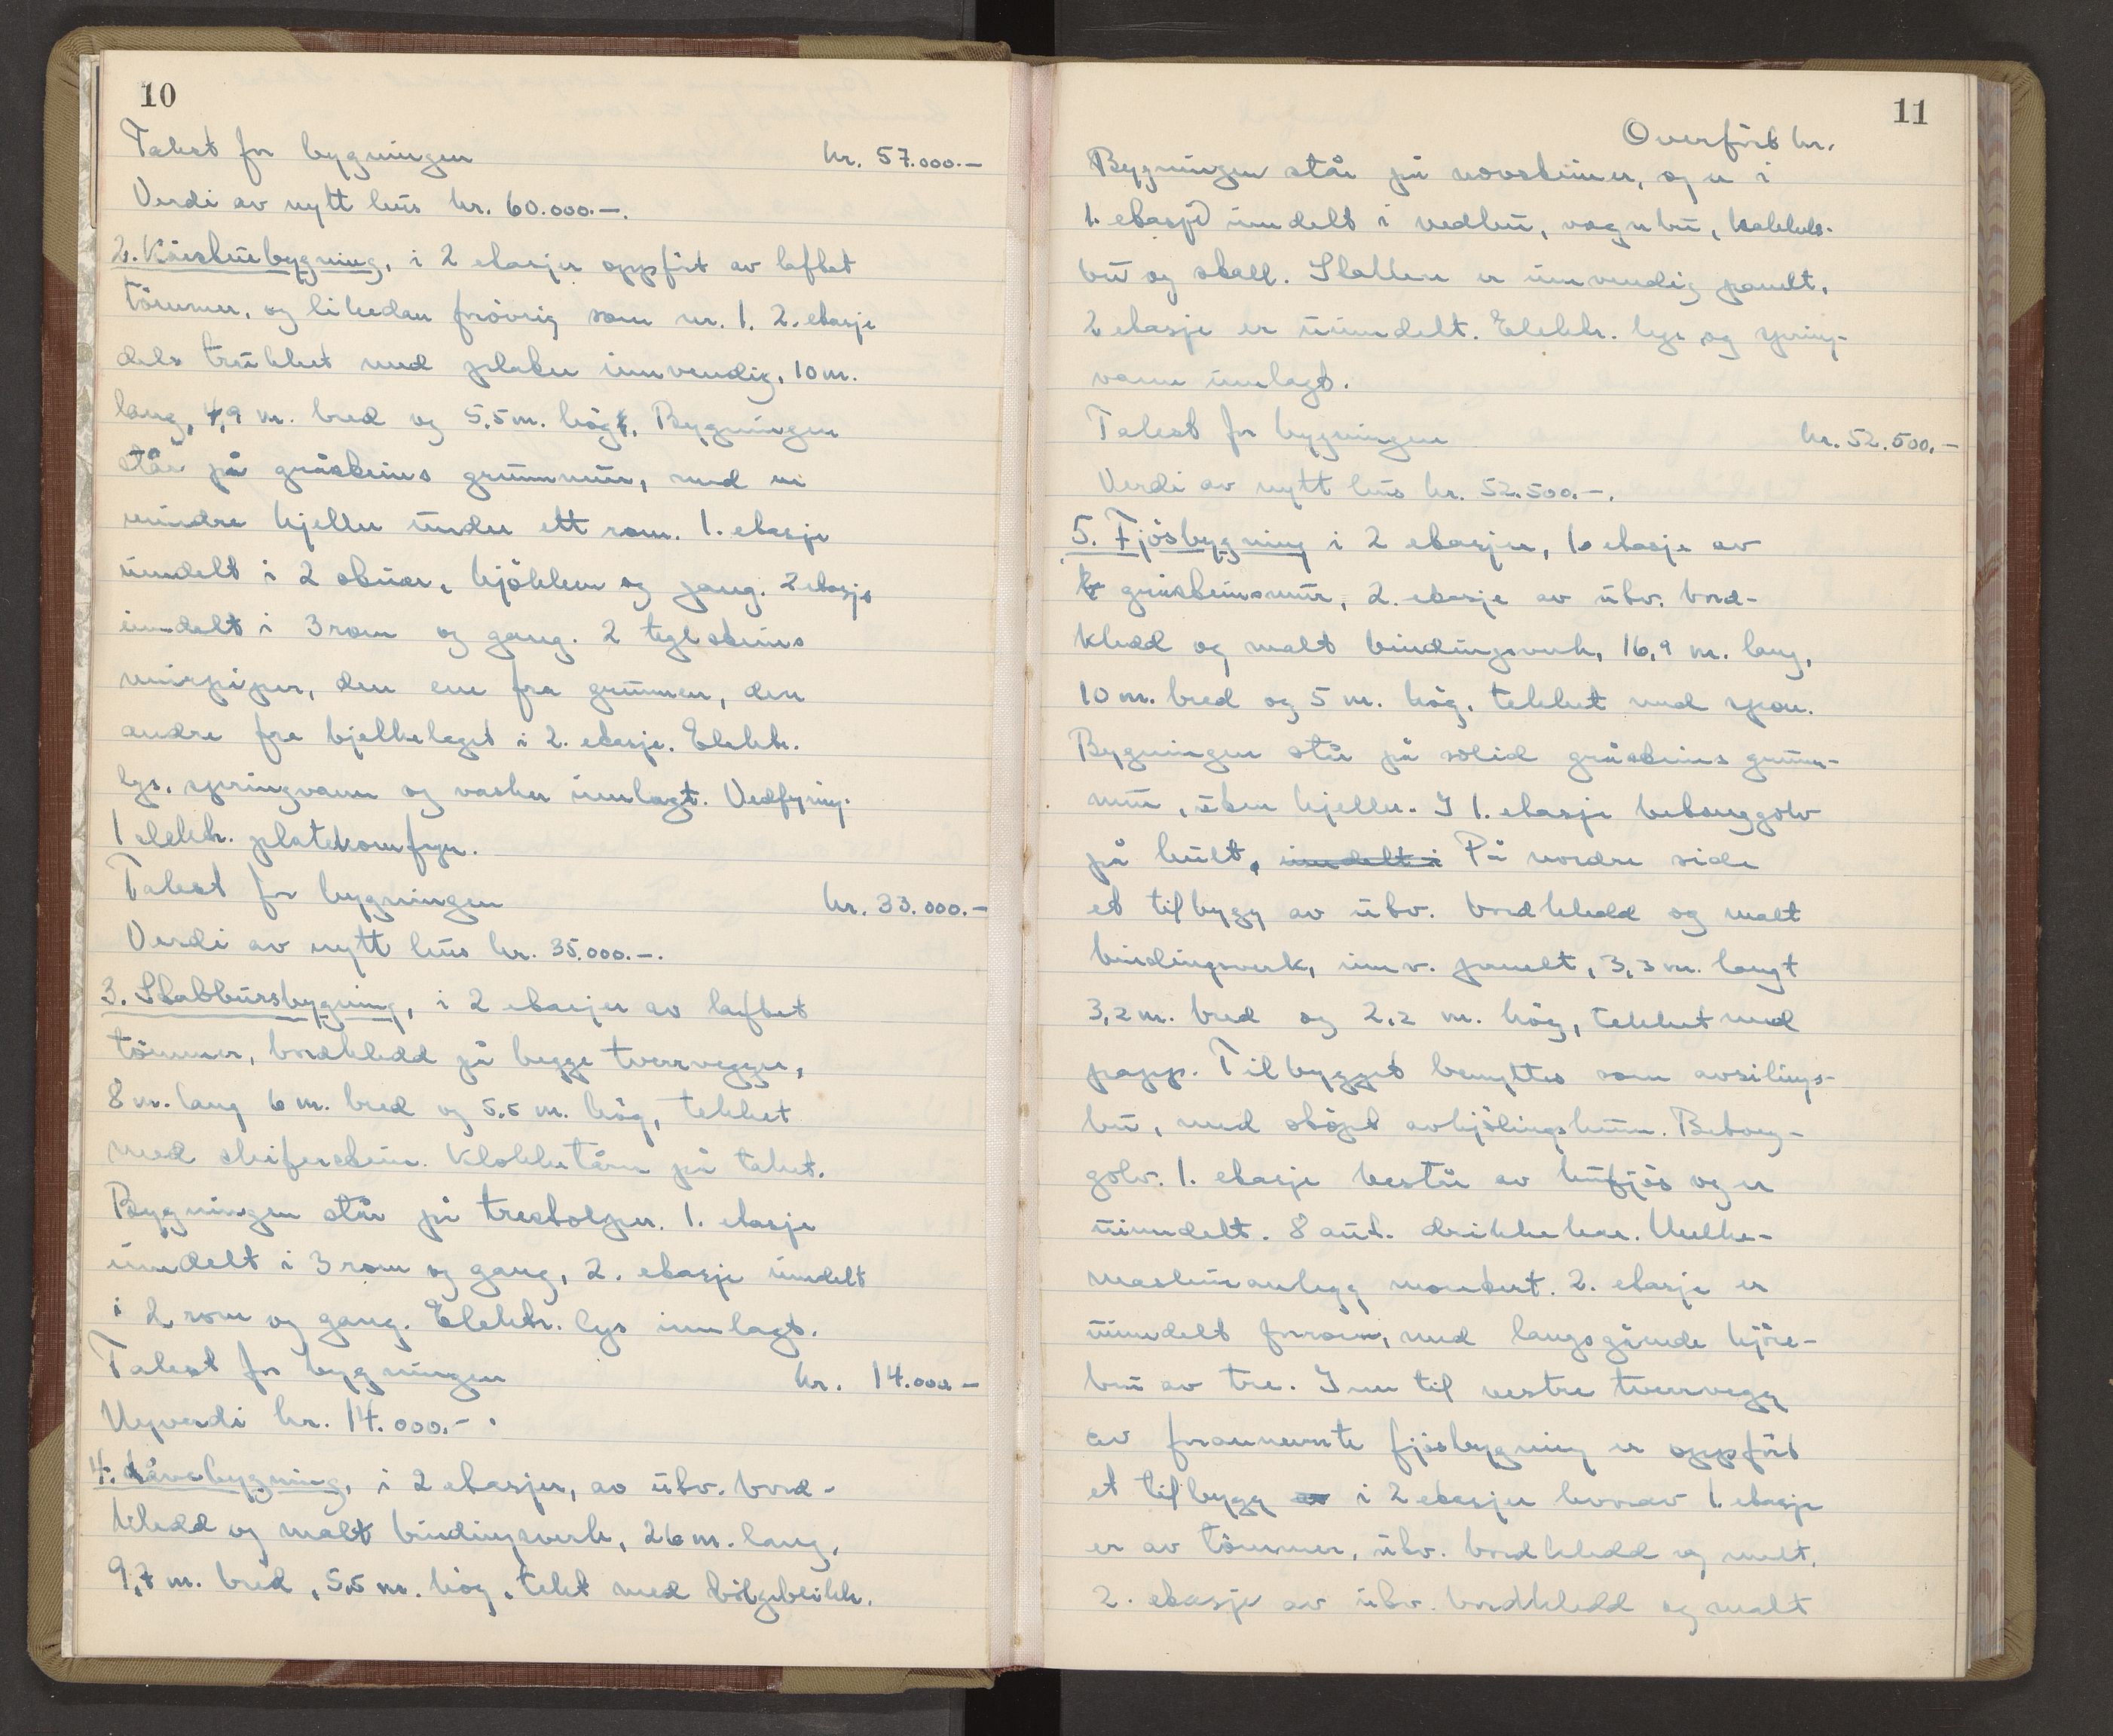 10
Takst for bygningen kr. 57.000.—
Verdi av nytt hus kr. 60.000.—.
2. Kårstubygning, i 2 etasjer oppført av laftet
tömmer, og likedan forövrig som nr. 1. 2. etasje
dels trukket med plater innvendig, 10 m.
lang, 4,9 m. bred og 5,5 m. hög. Bygningen
står på gråsteins grunnmur, med en
mindre kjeller under ett rom. 1. etasje
inndelt i 2 stuer, kjökken og gang. 2 etasje
inndelt i 3 rom og gang. 2 teglsteins
murpiper, den ene fra grunnen, den
andre fra bjelkelaget i 2. etasje. Elektr.
lys, springvann og vasker innlagt. Vedfyring.
1 elektr. platekomfyr.
Takst for bygningen kr. 33.000.—
Verdi av nytt hus kr. 35.000.—.
3. Stabbursbygning, i 2 etasjer av laftet
tömmer, bordkledd på begge tverrvegger,
8 m. lang 6 m. bred og 5,5 m. hög, tekket
med skiferstein. Klokketårn på taket.
Bygningen står på trestolper. 1. etasje
inndelt i 3 rom og gang, 2. etasje inndelt
i 2 rom og gang. Elektr. lys innlagt.
Takst for bygningen kr. 14.000 —
Nyverdi kr. 14.000.—.
4. Låvebygning, i 2 etasjer, av utv. bord-
kledd og malt bindingsverk, 26 m. lang,
9,7 m. bred, 5,5 m. hög, tekt med bölgeblikk.
11
Overfört kr.
Bygningen står på novsteiner, og er i
1. etasje inndelt i vedbu, vognbu,
bu og stall. Stallen er innvendig panelt.
2 etasje er uinndelt. Elektr. lys og spring-
vann innlagt.
Takst for bygningen kr. 52.500.—
Verdi av nytt hus kr. 52.500.—.
5. Fjösbygning i 2 etasjer, 1. etasje av
gråsteinsmur, 2. etasje av utv. bord-
kledd og malt bindingsverk, 16,9 m. lang,
10 m. bred og 5 m. hög, tekket med spon.
Bygningen står på solid gråsteins grunn-
mur, uten kjeller. I 1. etasje betonggolv
på kult, inndelt i På nordre side
et tilbygg av utv. bordkledd og malt
bindingsverk, innv. panelt, 3,3 m. langt
3,2 m. bred og 2,2 m. hög, tekket med
papp. Tilbygget benyttes som avsilings-
bu, med stöpt avkjölingskum. Betong-
golv. 1. etasje består av kufjös og er
uinndelt. 8 aut. drikkekar. Melke-
maskinanlegg montert. 2. etasje er
uinndelt forrom, med langsgående kjöre-
bru av tre. Inn til vestre tverrvegg
av forannevnte fjösbygning er oppfört
et tilbygg av i 2 etasjer hvorav 1. etasje
er av tömmer, utv. bordkledd og malt.
2. etasje av utv. bordkledd og malt